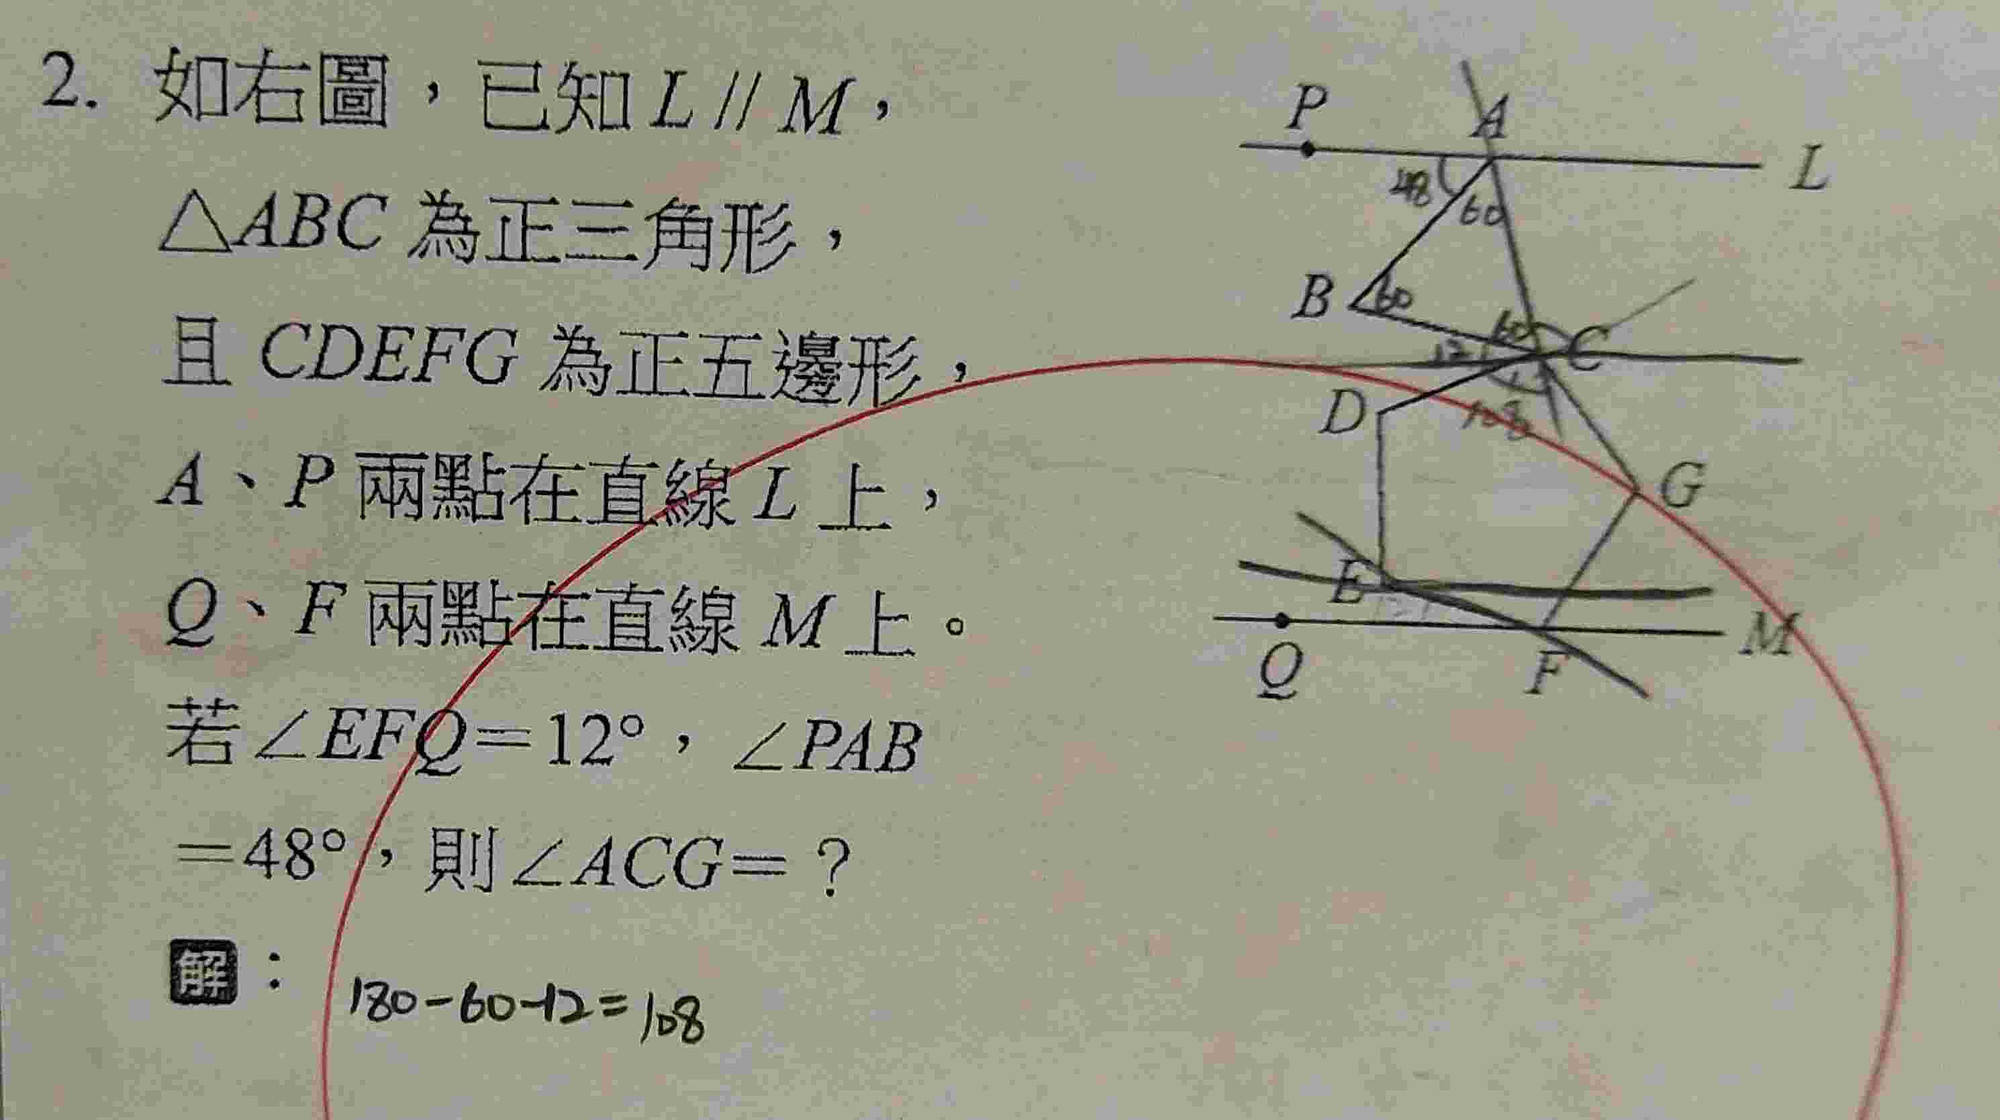 2. 如右圖，已知 L // M，
△ABC 為正三角形，
且 CDEFG 為正五邊形，
A、P 兩點在直線 L 上，
Q、F 兩點在直線 M 上。
若∠EFQ＝12°，∠PAB
＝48°，則∠ACG＝？
解：
180-60-12=108
P
A
L
48
60
B
60
60
C
12
D
108
G
E
M
Q
F